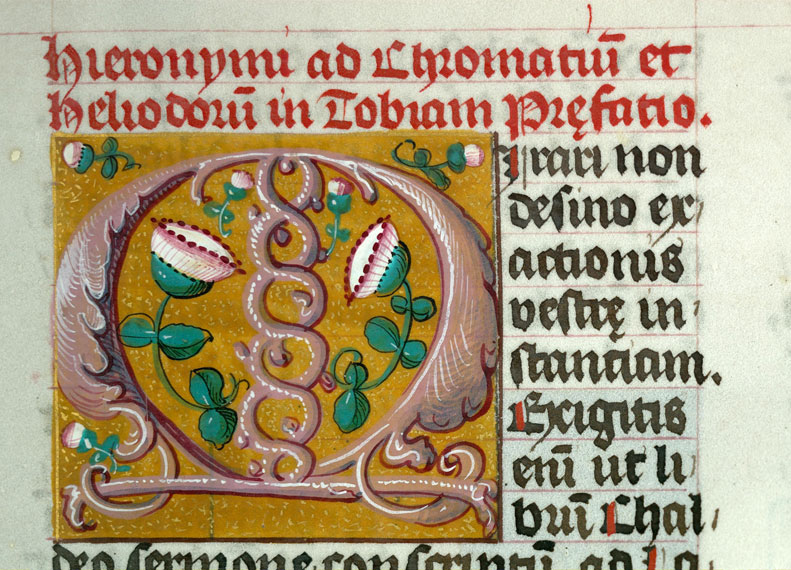 Hieronymi ad Chromatiū et
Heliodorū in Tobiam Pręfatio.
MIrari non
desino ex
actionis
vestrę in
stantiam.
Exigitis
enī ut li
brū Chal
deo sermone conscriptū ad La